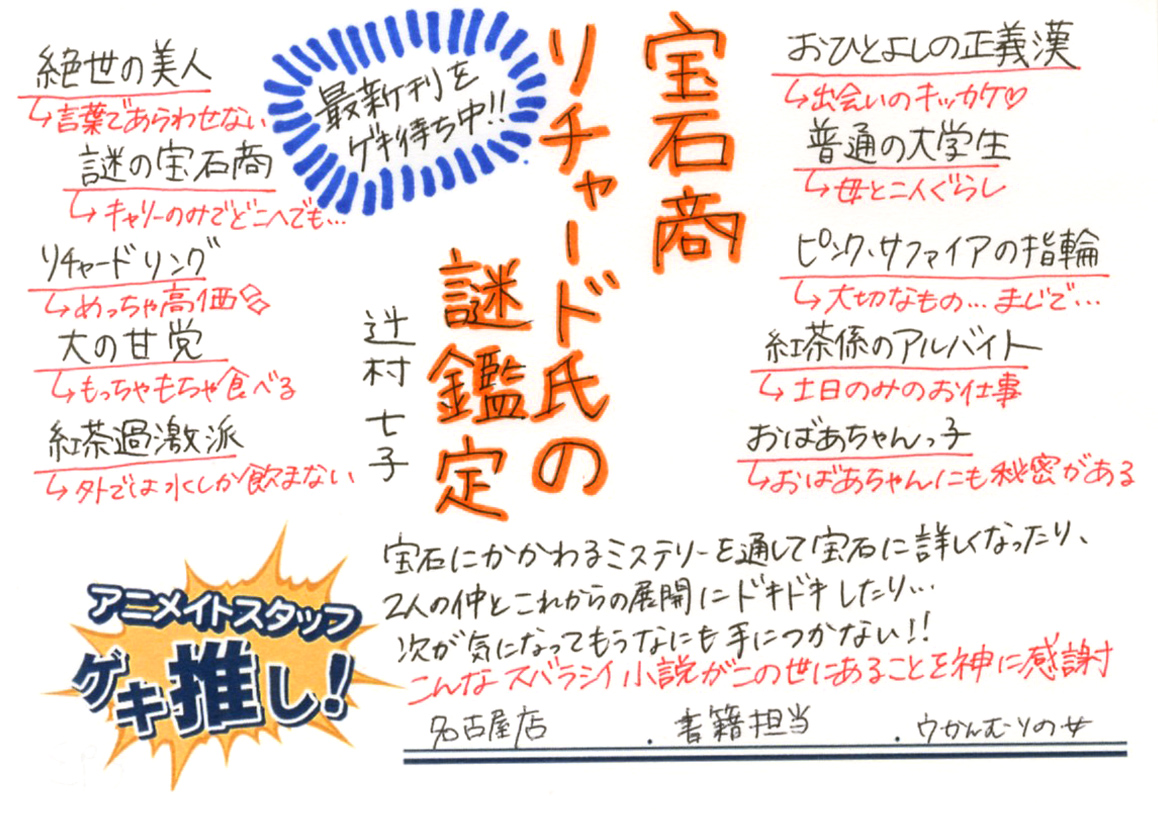 宝石商
リチャード氏の
謎鑑定
辻村七子
最新刊を
ゲキ待ち中!!
絶世の美人
↳言葉であらわせない
謎の宝石商
↳キャリーのみでどこへでも…
リチャードリング
↳めっちゃ高価
大の甘党
↳もっちゃもちゃ食べる
紅茶過激派
↳外では水しか飲まない
おひとよしの正義漢
↳出会いのキッカケ♡
普通の大学生
↳母と二人ぐらし
ピンク・サファイアの指輪
↳大切なもの…まじで…
紅茶係のアルバイト
↳土日のみのお仕事
おばあちゃんっ子
↳おばあちゃんにも秘密がある
アニメイトスタッフ
ゲキ推し!
宝石にかかわるミステリーを通して宝石に詳しくなったり、
2人の仲とこれからの展開にドキドキしたり…
次が気になってもうなにも手につかない!!
こんなスバラシイ小説がこの世にあることを神に感謝
名古屋店 . 書籍担当 . ウかんむりの女